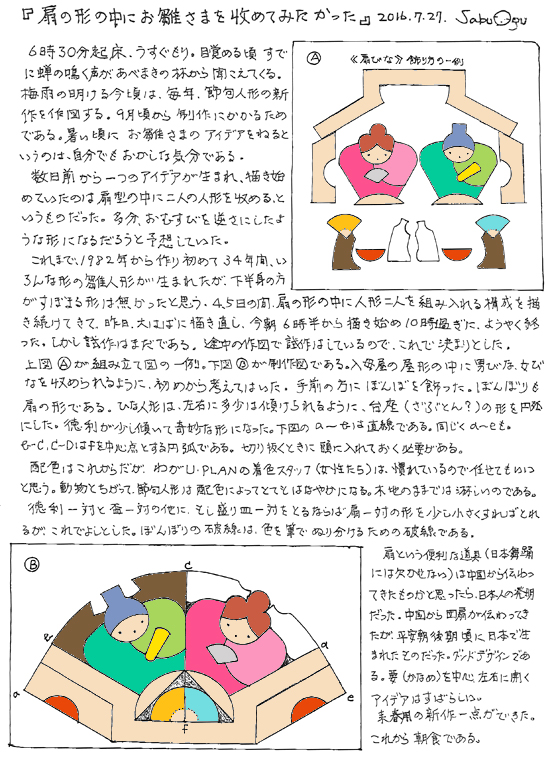 『扇の形の中にお雛さまを収めてみたかった』 2016.7.27. SabuOgu
6時30分起床、うすぐもり。目覚める頃すで
に蝉の鳴く声が、あべまきの林から聞こえてくる。
梅雨の明ける今頃は、毎年、節句人形の新
作を作図する。9月頃から制作にかかるため
である。暑い頃にお雛さまのアイデアをねると
いうのは、自分でもおかしな気分である。
数日前から一つのアイデアが生まれ、描き始
めていたのは扇型の中に二人の人形を収める、と
いうものだった。多分、おむすびを逆さにしたよ
うな形になるだろうと予想していた。
これまで、1982年から作り初めて34年間、い
ろんな形の雛人形が生まれたが、下半身の方
がすぼまる形は無かったと思う。4,5日の間、扇の形の中に人形二人を組み入れる構成を描
き続けてきて、昨日、大はばに描き直し、今朝6時半から描き始め10時過ぎに、ようやく終
った。しかし試作はまだである。途中の作図で試作はしているので、これで決まりとした。
上図Ⓐが組み立て図の一例。下図Ⓑが制作図である。入母屋の屋形の中に男びな、女び
なを収められるように、初めから考えてはいた。手前の方にぼんぼりを飾った。ぼんぼりも
扇の形である。ひな人形は、左右に多少は傾けられるように、台座(ざぶとん?)の形を円弧
にした。徳利が少し傾いて奇妙な形になった。下図のa〜eは直線である。同じくa〜eも。
e-C、C-Dはfを中心点とする円弧である。切り抜くときに頭に入れておく必要がある。
配色はこれからだが、わがU・PLANの着色スタッフ(女性たち)は、慣れているので任せてもいいと
思う。動物とちがって、節句人形は配色によってとてもはなやかになる。木地のままでは淋しいのである。
徳利一対と盃一対の他に、もし盛り皿一対をとるならば扇一対の形を少し小さくすればとれ
るが、これでよしとした。ぼんぼりの破線は、色を筆でぬり分けるための破線である。
Ⓐ
《扇びな》飾り方の一例
Ⓑ
c
e
a
a
e
f
扇という便利な道具(日本舞踊
には欠かせない)は中国から伝わっ
てきたものかと思ったら、日本人の発明
だった。中国から団扇が伝わってき
たが、平安朝後期頃に日本で生
まれたそのだった。グッドデザインであ
る。要(かなめ)を中心に左右に開く
アイデアはすばらしい。
来春用の新作一点ができた。
これから朝食である。